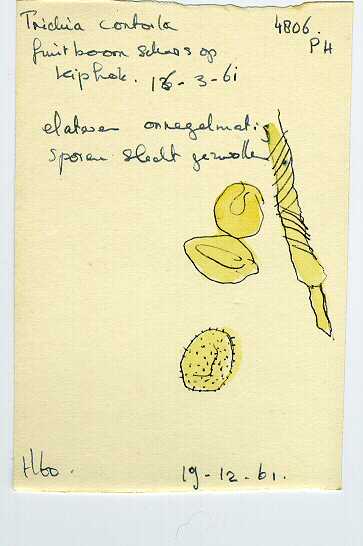 Trichia contorta
4806.
PH
fruitboom schors op
kiphok. 16-3-61
elateren onregelmatig
sporen slecht gezwollen
H60.
19-12-61.